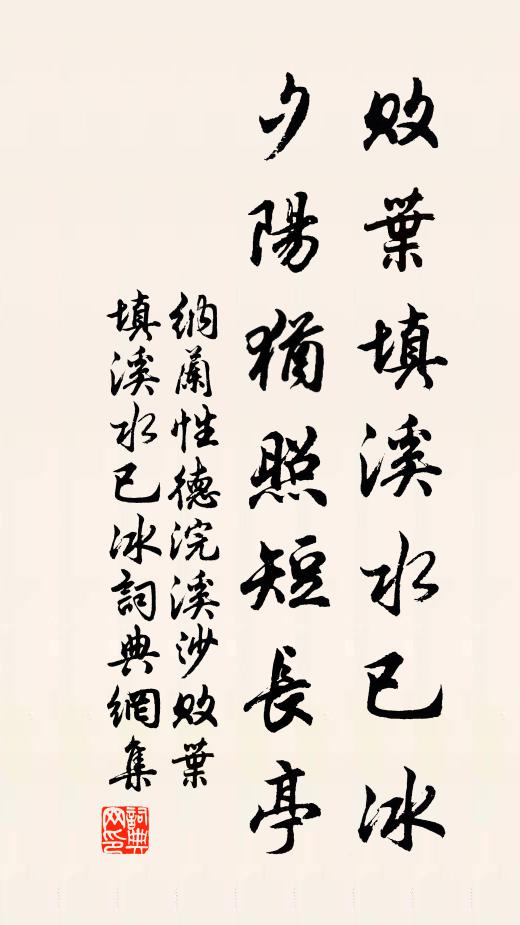 敗葉填溪水已冰
夕陽猶照短長亭
納蘭性德浣溪沙敗葉
填溪水已冰詞典網集
詞典網印